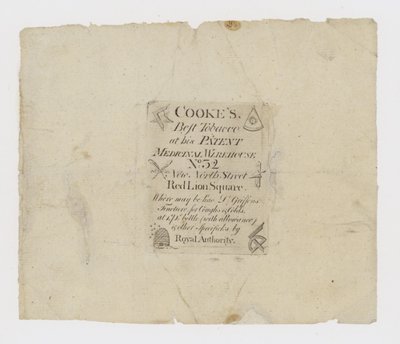 COOKE'S,
Best Tobacco
at his PATENT
MEDICINAL WAREHOUSE
No. 32
New North Street
Red Lion Square.
Where may be had Dr Griffins
Tincture for Coughs & Colds,
at bottle (with allowance)
& other Specificks by
Royal Authority.